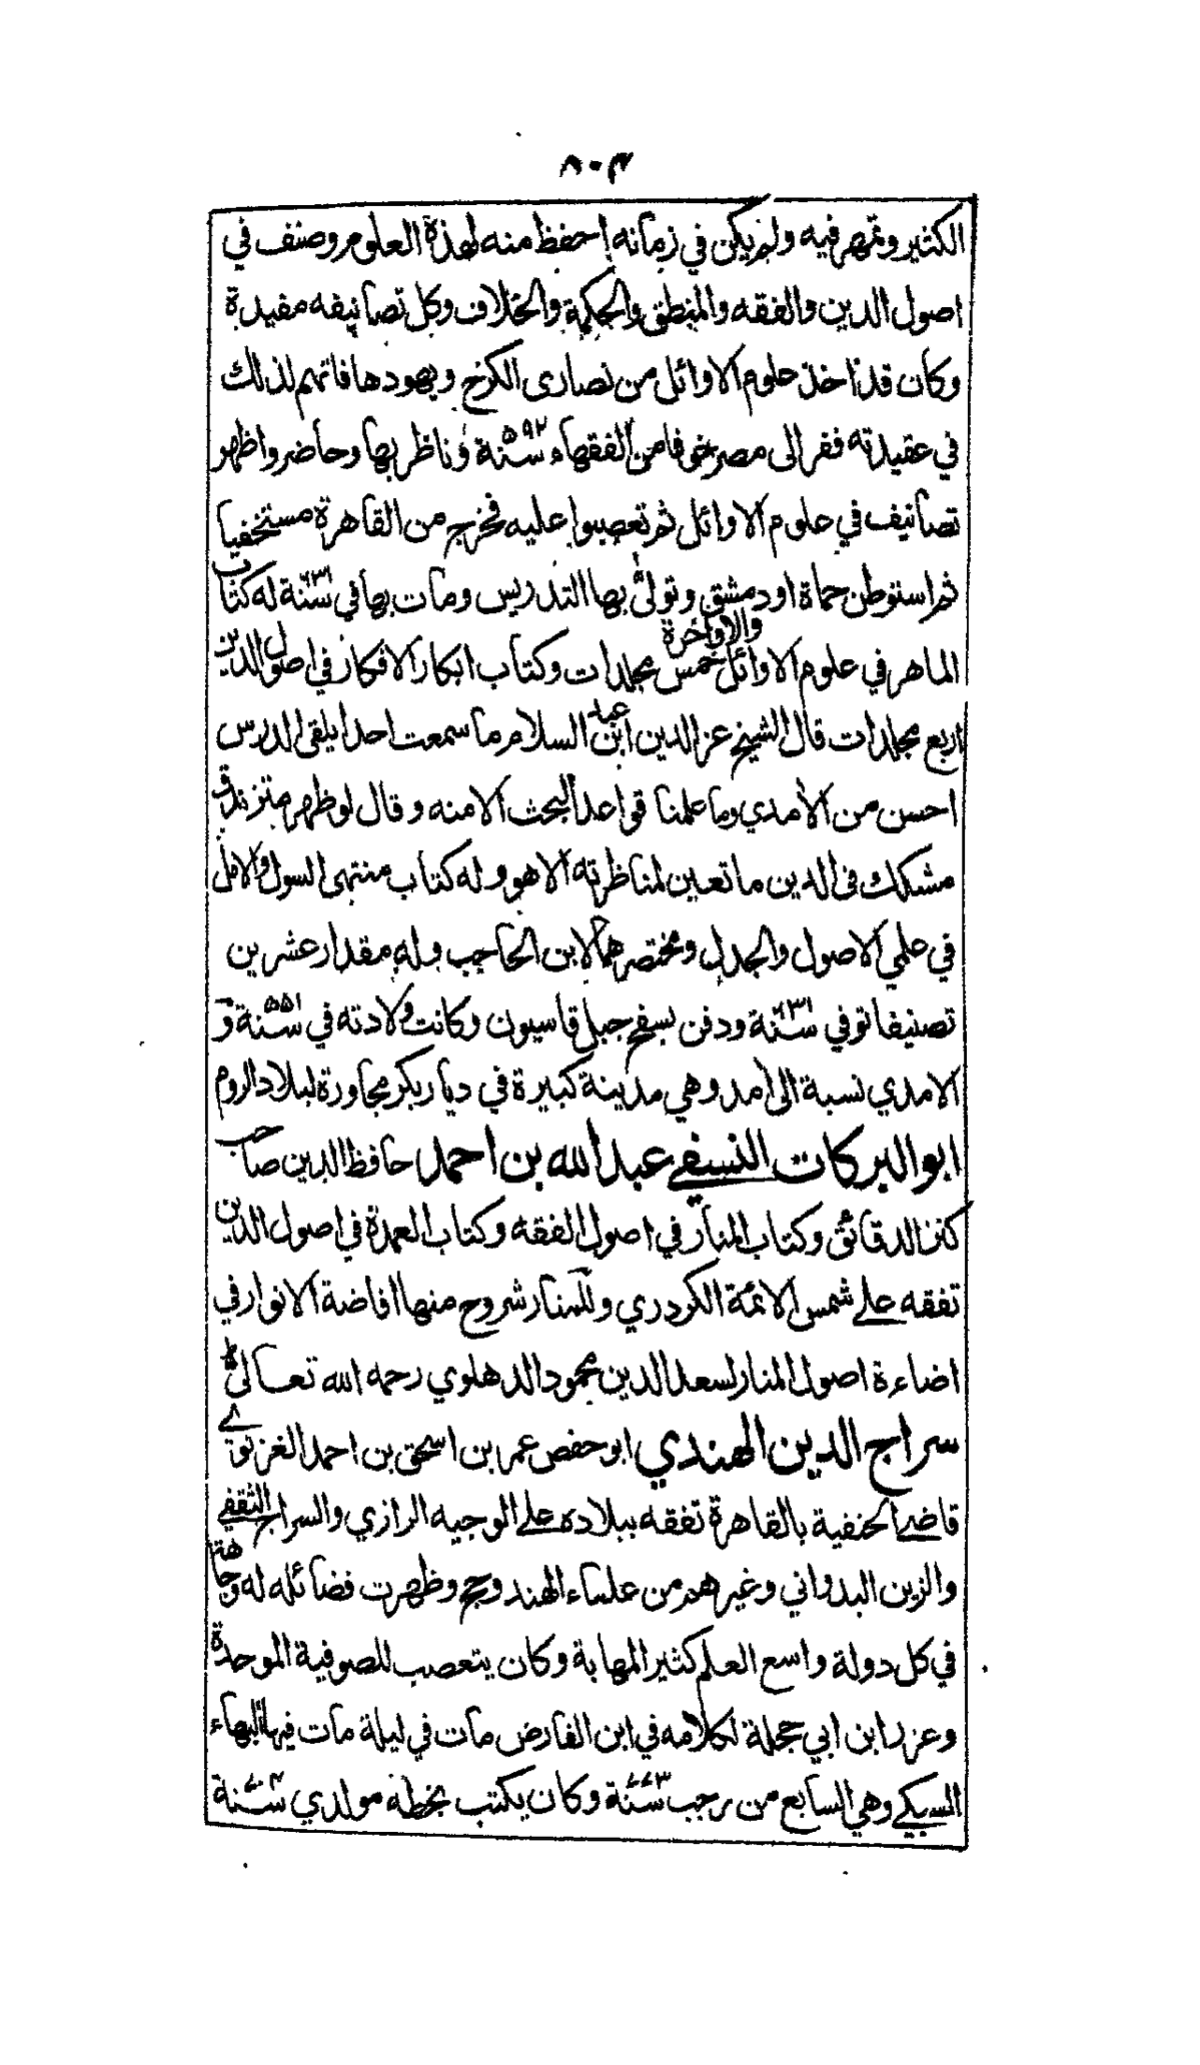 ٨٠٣
الكثير وتمهر فيه ولم يكن في زمانه احفظ منه لهذه العلوم وصنف في
اصول الدين والفقه والمنطق والحكمة والخلاف وكل تصانيفه مفيدة
وكان قد اخذ علوم الاوائل من نصارى الكرخ ويهودها فاتهم لذلك
في عقيدته ففر الى مصر خوفا من الفقهاء سنة ٥٩٢ وناظر بها وحاضر واظهر
تصانيف في علوم الاوائل ثم تعصبوا عليه فخرج من القاهرة مستخفيا
ثم استوطن حماة او دمشق وتولى بها التدريس ومات بها في سنة ٦٣١ له كتاب
الماهر في علوم الاوائل والاواخر خمس مجلدات وكتاب ابكار الافكار في اصول الدين
اربع مجلدات قال الشيخ عز الدين ابن عبد السلام ما سمعت احدا يلقى الدرس
احسن من الآمدي وما علمنا قواعد البحث الا منه وقال لو ظهر متزندق
مشكك في الدين ما تعين لمناظرته الا هو وله كتاب منتهى السول والامل
في علمي الاصول والجدل ومختصرهما لابن الحاجب وله مقدار عشرين
تصنيفا توفي سنة ٦٣١ ودفن بسفح جبل قاسيون وكانت ولادته في سنة ٥٥١ و
الامدي نسبة الى آمد وهي مدينة كبيرة في ديار بكر مجاورة لبلاد الروم
ابو البركات النسفي عبد الله بن احمد حافظ الدين صاحب
كنز الدقائق وكتاب المنار في اصول الفقه وكتاب العمدة في اصول الدين
تفقه على شمس الائمة الكردري وللمنار شروح منها افاضة الانوار في
اضاءة اصول المنار لسعد الدين محمود الدهلوي رحمه الله تعالى
سراج الدين الهندي ابو حفص عمر بن اسحق بن احمد الغزنوي
قاضي الحنفية بالقاهرة تفقه ببلاده على الوجيه الرازي والسراج الثقفي
والزين البدواني وغيرهم من علماء الهند وحج وظهرت فضائله له وجاهة
في كل دولة واسع العلم كثير المهابة وكان يتعصب للصوفية الموحدة
وعزر ابن ابي حجلة لكلامه في ابن الفارض مات في ليلة مات فيها البهاء
السبكي وهي السابع من رجب سنة ٧٧٣ وكان يكتب بخطه مولدي سنة ٧٠٤